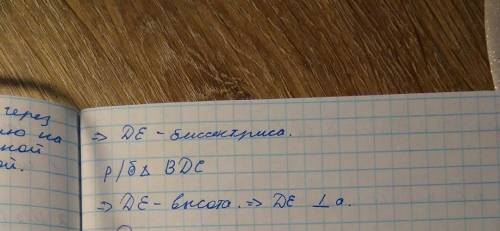 через
ию на
ной
ой.
⇒ DE - биссектриса.
р/б △ BDC
⇒ DE - высота. ⇒ DE ⊥ a.